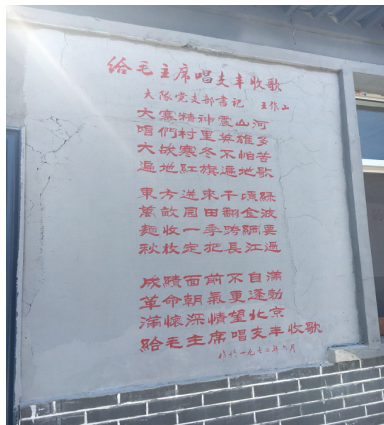 给毛主席唱支丰收歌
大隊党支部書記 王作山
大寨精神震山河
咱們村里英雄多
大战寒冬不怕苦
遍地紅旗遍地歌
東方送來千頃綠
萬畝園田翻金波
麵收一季跨兩要
秋收定把長江過
成績面前不自滿
革命朝氣更蓬勃
滿懷深情望北京
給毛主席唱支丰收歌
一九七二年六月